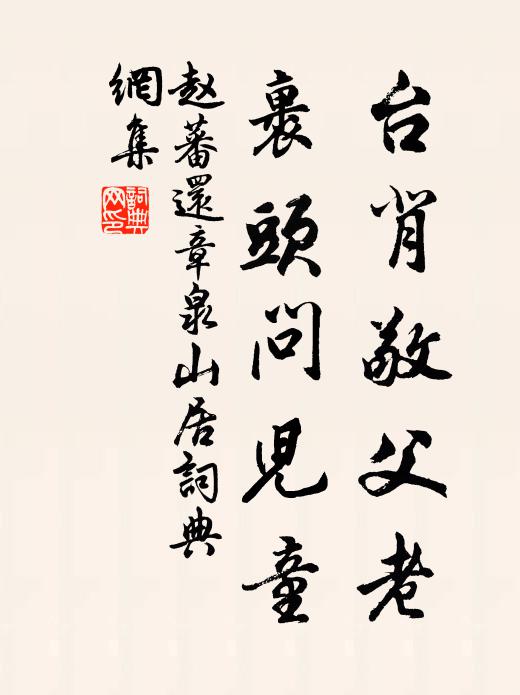 台背敬父老
裹頭問兒童
趙蕃還章泉山居詞典
網集
詞典
网印